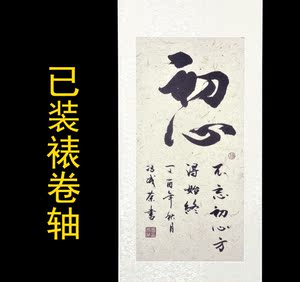 已装裱卷轴
初心
不忘初心方
得始终
丁酉年秋月